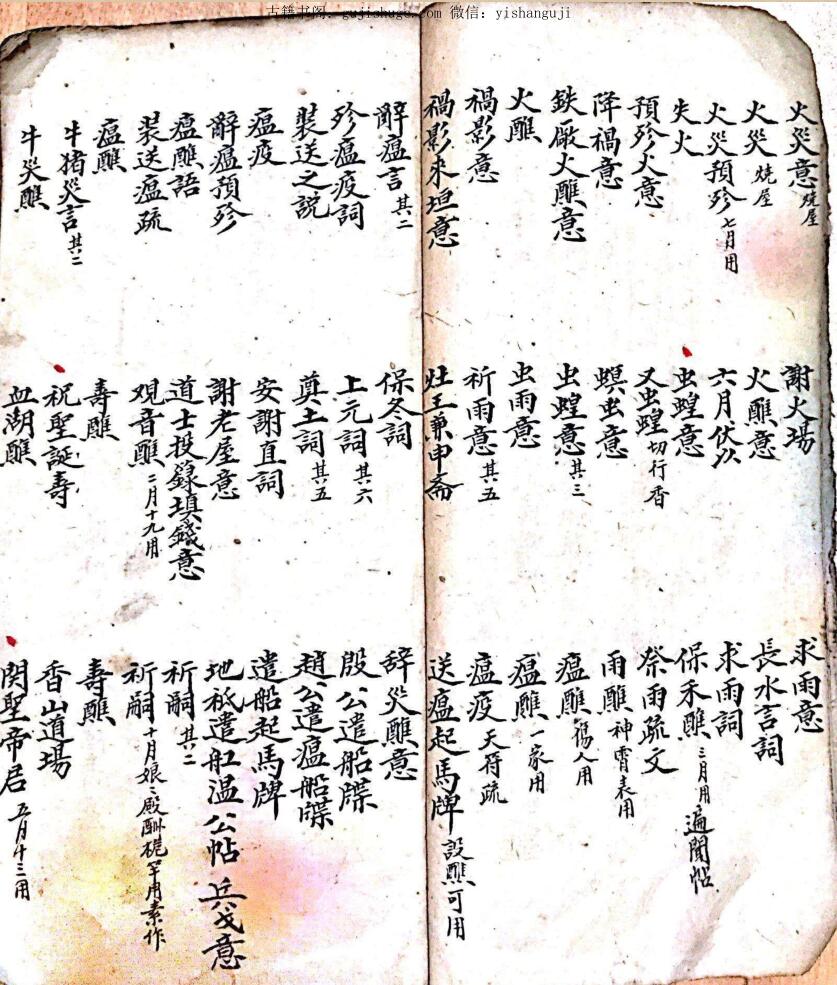 古籍书阁：gujishuge.com 微信：yishanguji
火災意 燒屋
火災 燒屋
火災預殄 七月用
失火
預殄火意
降禍意
鉄廠火醮意
火醮
禍影意
禍影来垣意
謝火場
火醮意
六月伏以
虫蝗意
又虫蝗 切行香
螟虫意
虫蝗意 其三
虫雨意
祈雨意 其五
灶王兼申斋
求雨意
長水言詞
求雨詞
保禾醮 三月用 遍聞帖
祭雨疏文
雨醮 神霄表用
瘟醮 傷人用
瘟醮 一家用
瘟疫 天符疏
送瘟起馬牌 設醮可用
辭瘟言 其二
殄瘟疫詞
裝送之説
瘟疫
辭瘟預殄
瘟醮語
装送瘟疏
瘟醮
牛猪災言 其二
牛災醮
保冬詞
上元詞 其六
奠土詞 其五
安謝直詞
謝老屋意
道士投籙填錢意
观音醮 二月十九用
壽醮
祝聖誕壽
血湖醮
辞災醮意
殷公遣船牒
趙公遣瘟船牒
遣船起馬牌
地祇遣舡温公帖 兵戈意
祈嗣 其二
祈嗣 十月娘〻殿酬 用素作
壽醮
香山道場
関聖帝君 五月十三用